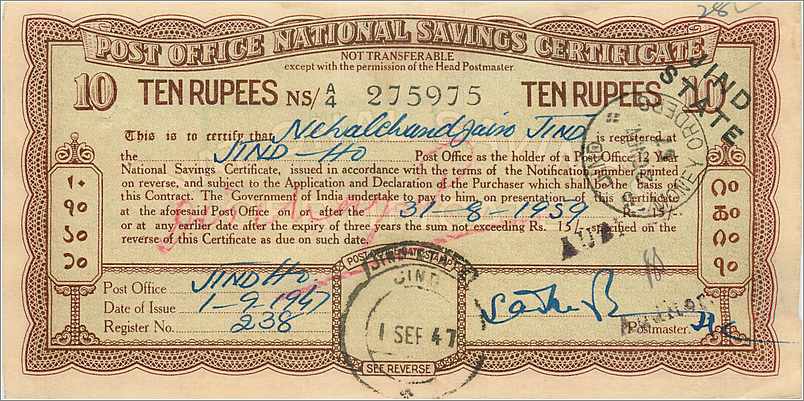 282
POST OFFICE NATIONAL SAVINGS CERTIFICATE
NOT TRANSFERABLE
except with the permission of the Head Postmaster.
10 TEN RUPEES NS/ A/4 275975 TEN RUPEES 10
JIND STATE
This is to certify that Nehalchand Jain JIND is registered at
the JIND-HO Post Office as the holder of a Post Office 12 Year
National Savings Certificate, issued in accordance with the terms of the Notification number printed
on reverse, and subject to the Application and Declaration of the Purchaser which shall be the basis of
this Contract. The Government of India undertake to pay him, on presentation of this Certificate
at the aforesaid Post Office on or after the 31-8-1959 Rs. 15/-
or at any earlier date after the expiry of three years the sum not exceeding Rs. 15/- specified on the
reverse of this Certificate as due on such date.
MONEY ORDERS
POST OFFICE DATE STAMP
Post Office JIND HO.
Date of Issue 1-9-1947
Register No. 238
JIND
1 SEP 47
Auditor
Postmaster
SEE REVERSE